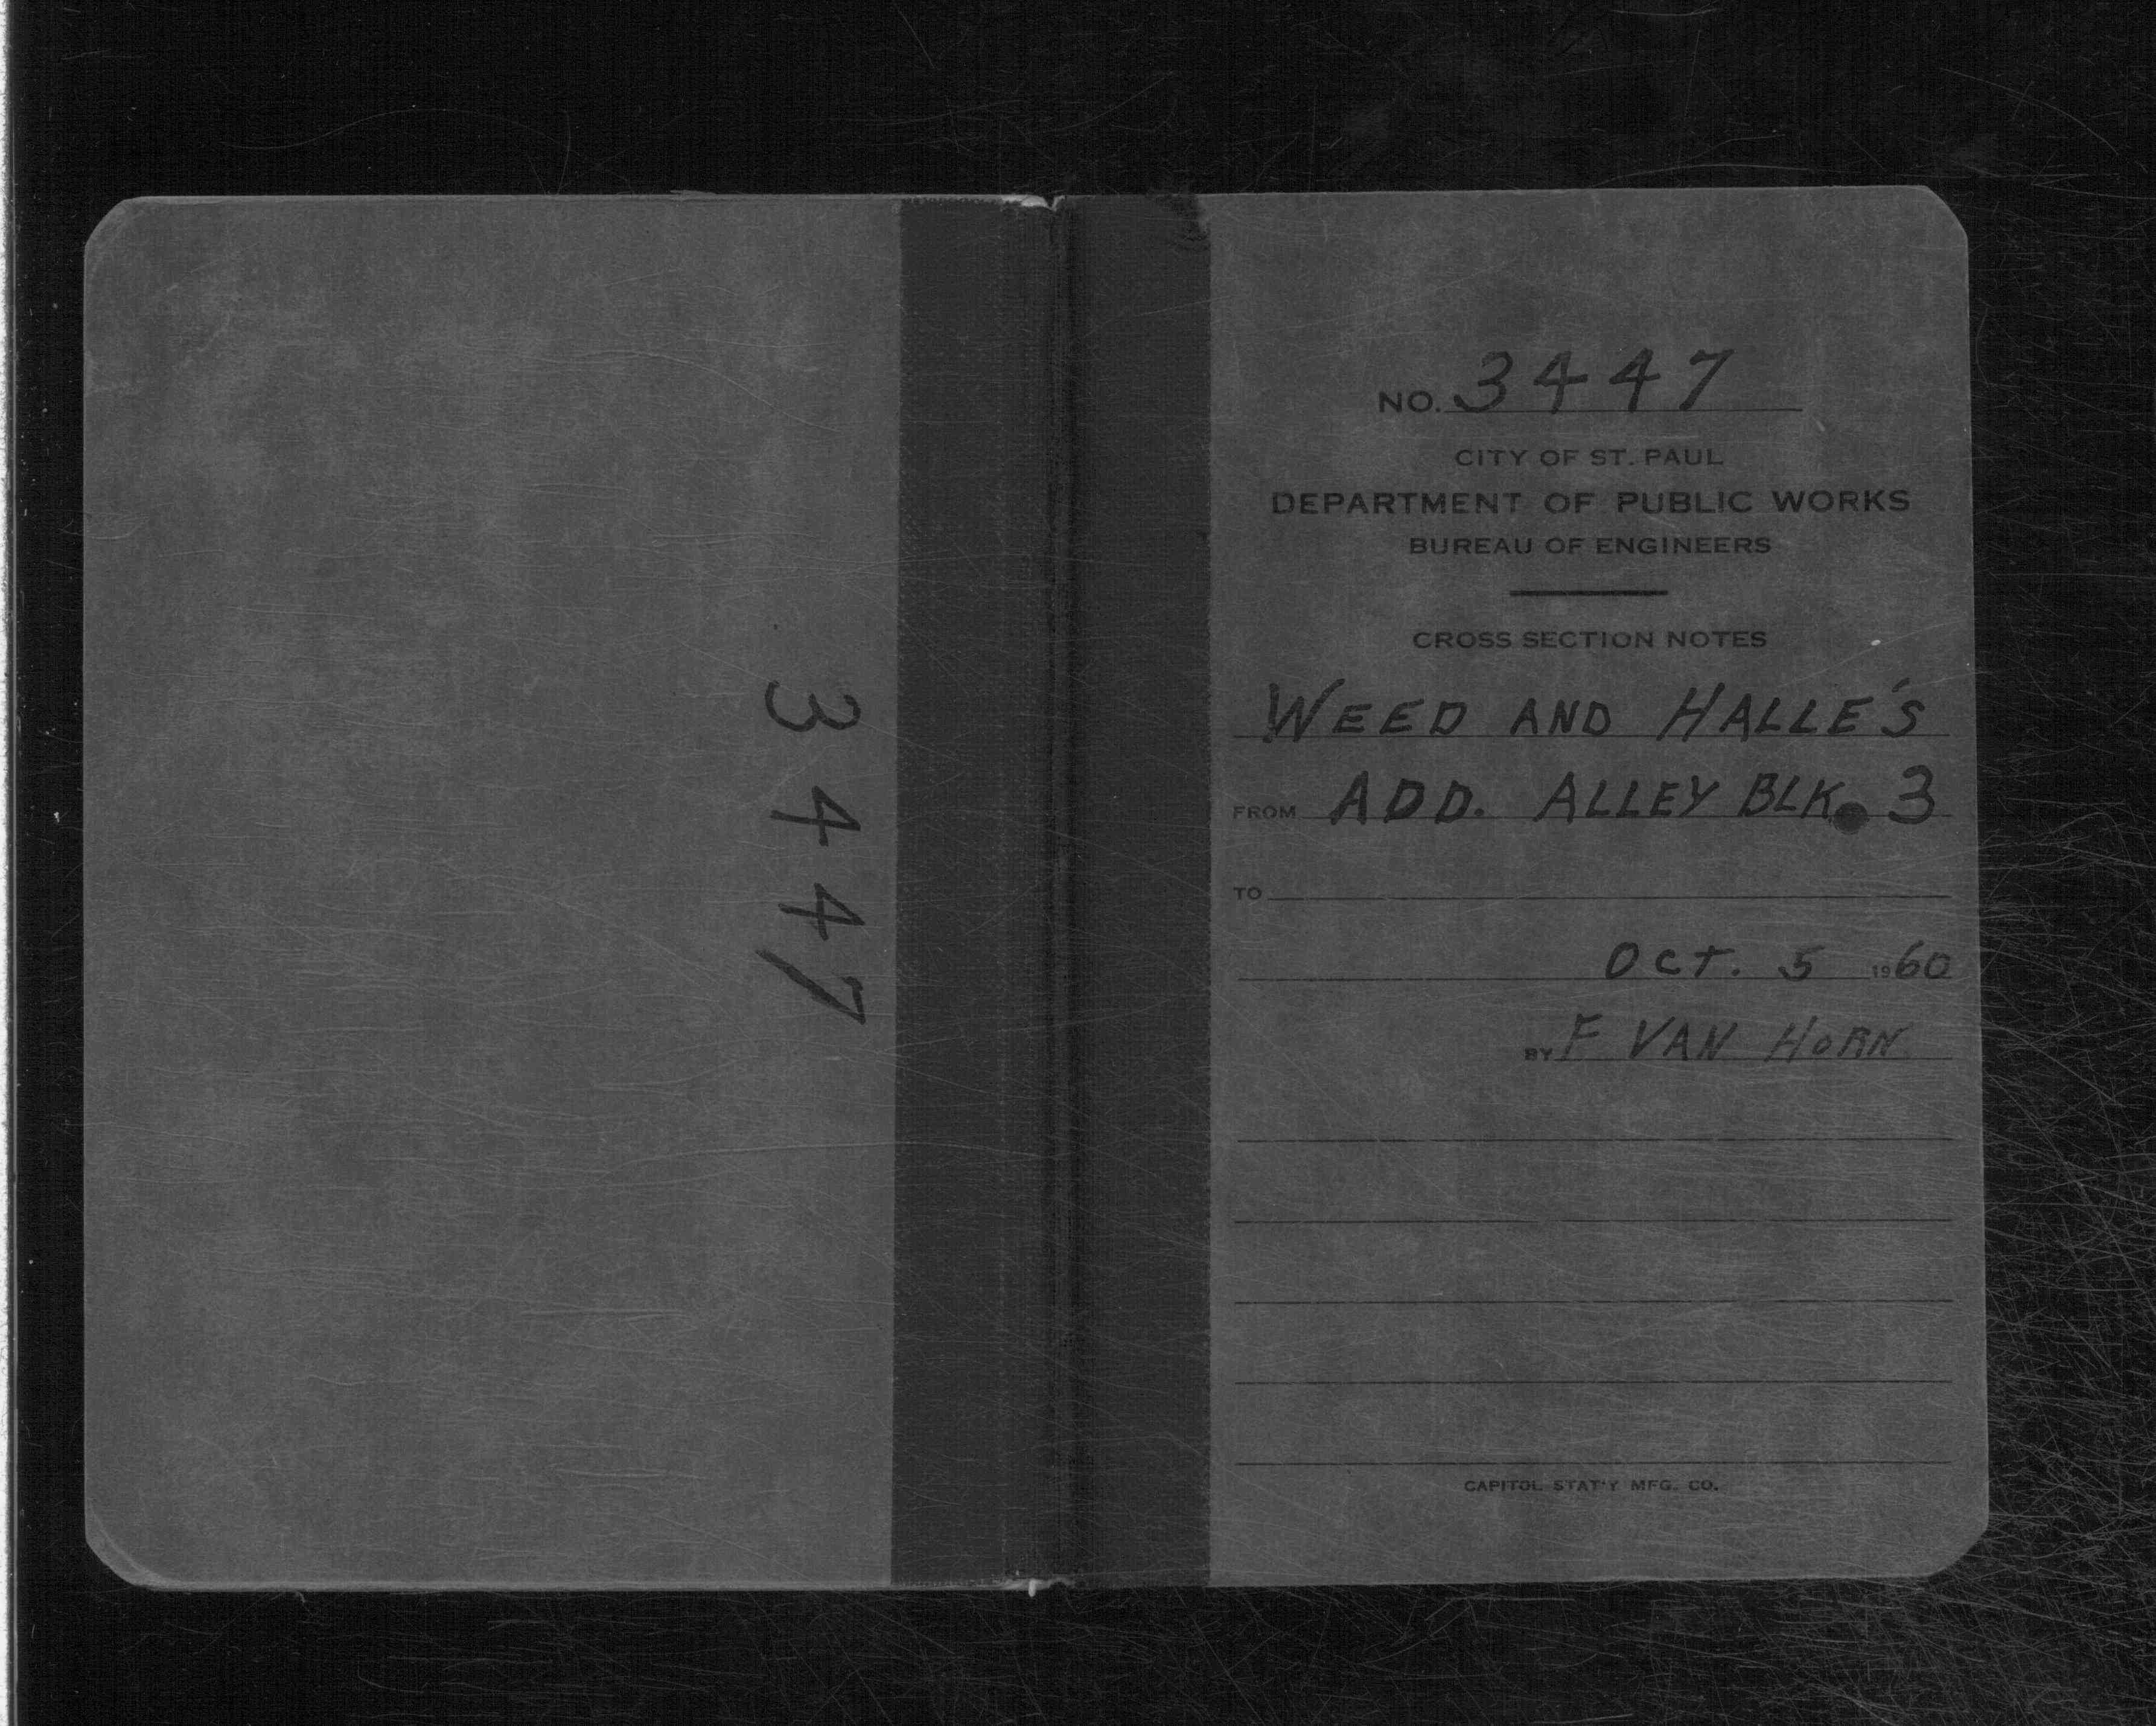 3447
NO. 3447
CITY OF ST. PAUL
DEPARTMENT OF PUBLIC WORKS
BUREAU OF ENGINEERS
CROSS SECTION NOTES
WEED AND HALLE'S
FROM ADD. ALLEY BLK. 3
TO
OCT. 5 1960
BY F VAN HORN
CAPITOL STAT'Y MFG. CO.